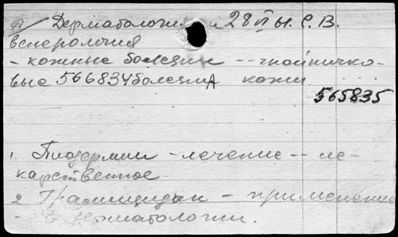 Дерматология и 28 п.С.В.
венерология
- кожные болезни -- гнойничко-
вые 566834 болезни кожи
565835
1. Пиодермии - лечение -- ле-
карственное
2. Грамицидин - применение
- в дерматологии.